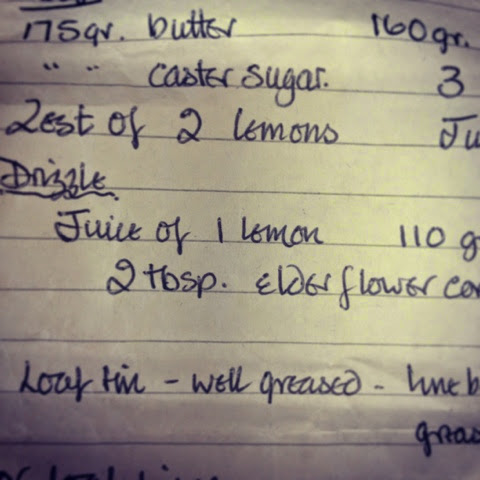 175gr. butter 160gr.
" " caster sugar. 3
Zest of 2 lemons Ju
Drizzle
Juice of 1 lemon 110 g
2 tbsp. elderflower cor
Loaf tin - well greased - line b
greas